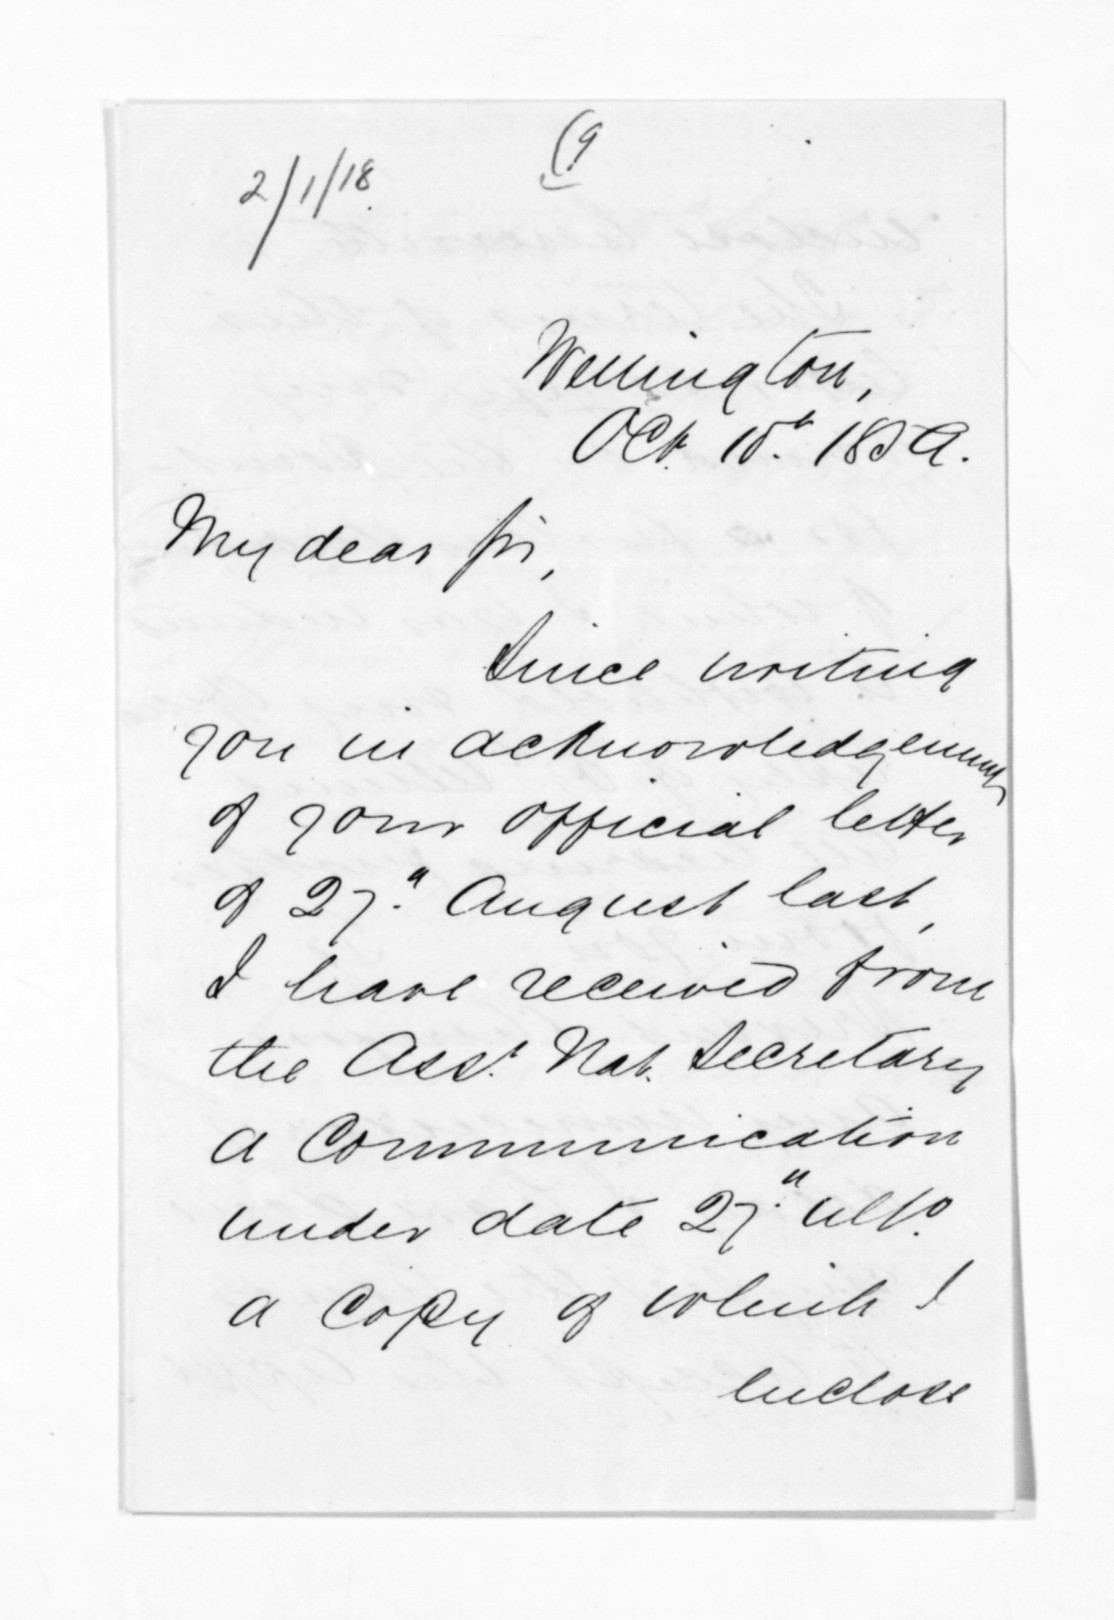 2/1/18.
(9
Wellington,
Oct. 15th 1859.
My dear Sir,
Since writing
you in acknowledgement
of your official letter
of 27th August last,
I have received from
the Asst. Nat. Secretary
a Communication
under date 27th ulto.
a Copy of which I
enclose